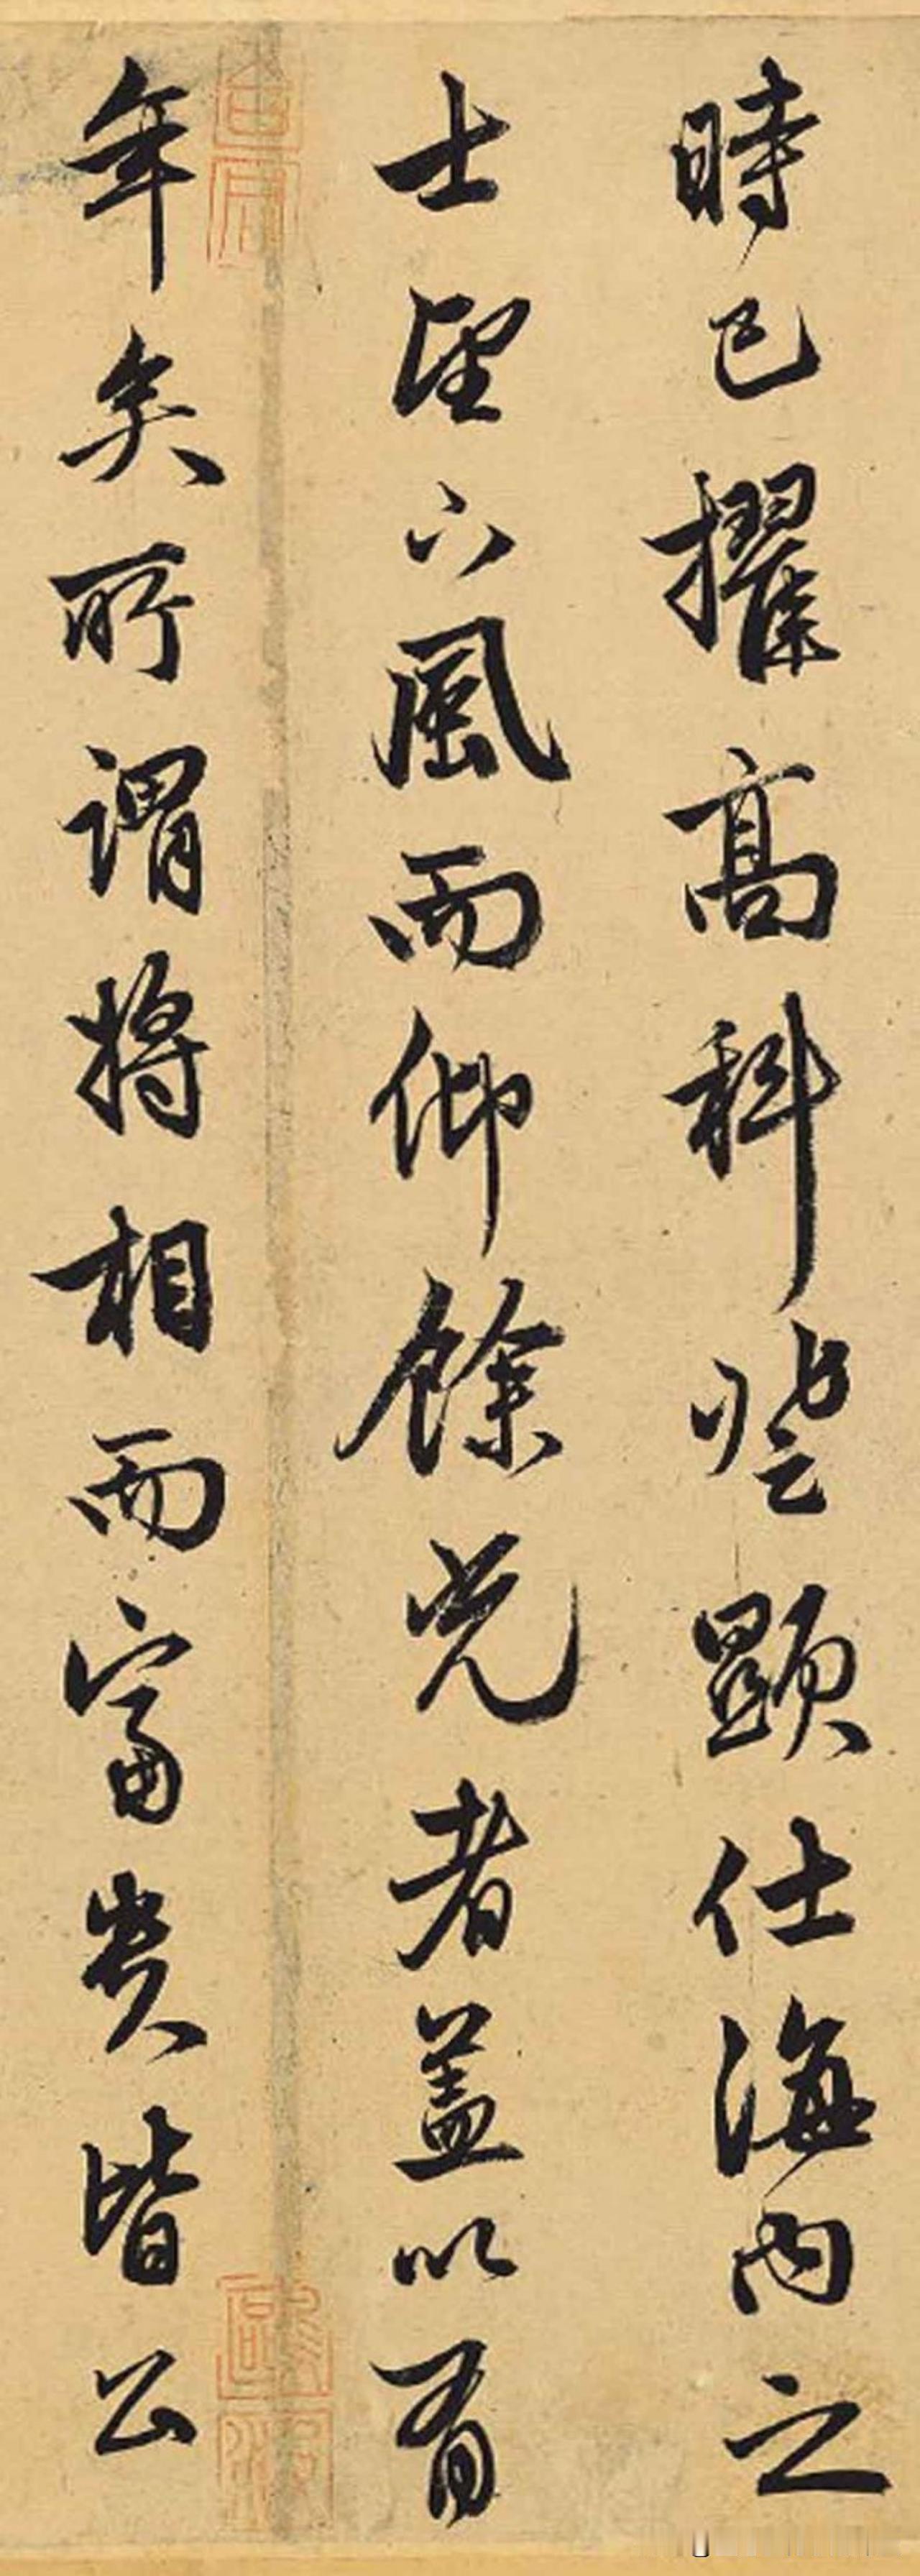 時已擢高科登顯仕海内之
士望下風而仰餘光者蓋以有
年矣所謂將相而富貴皆公